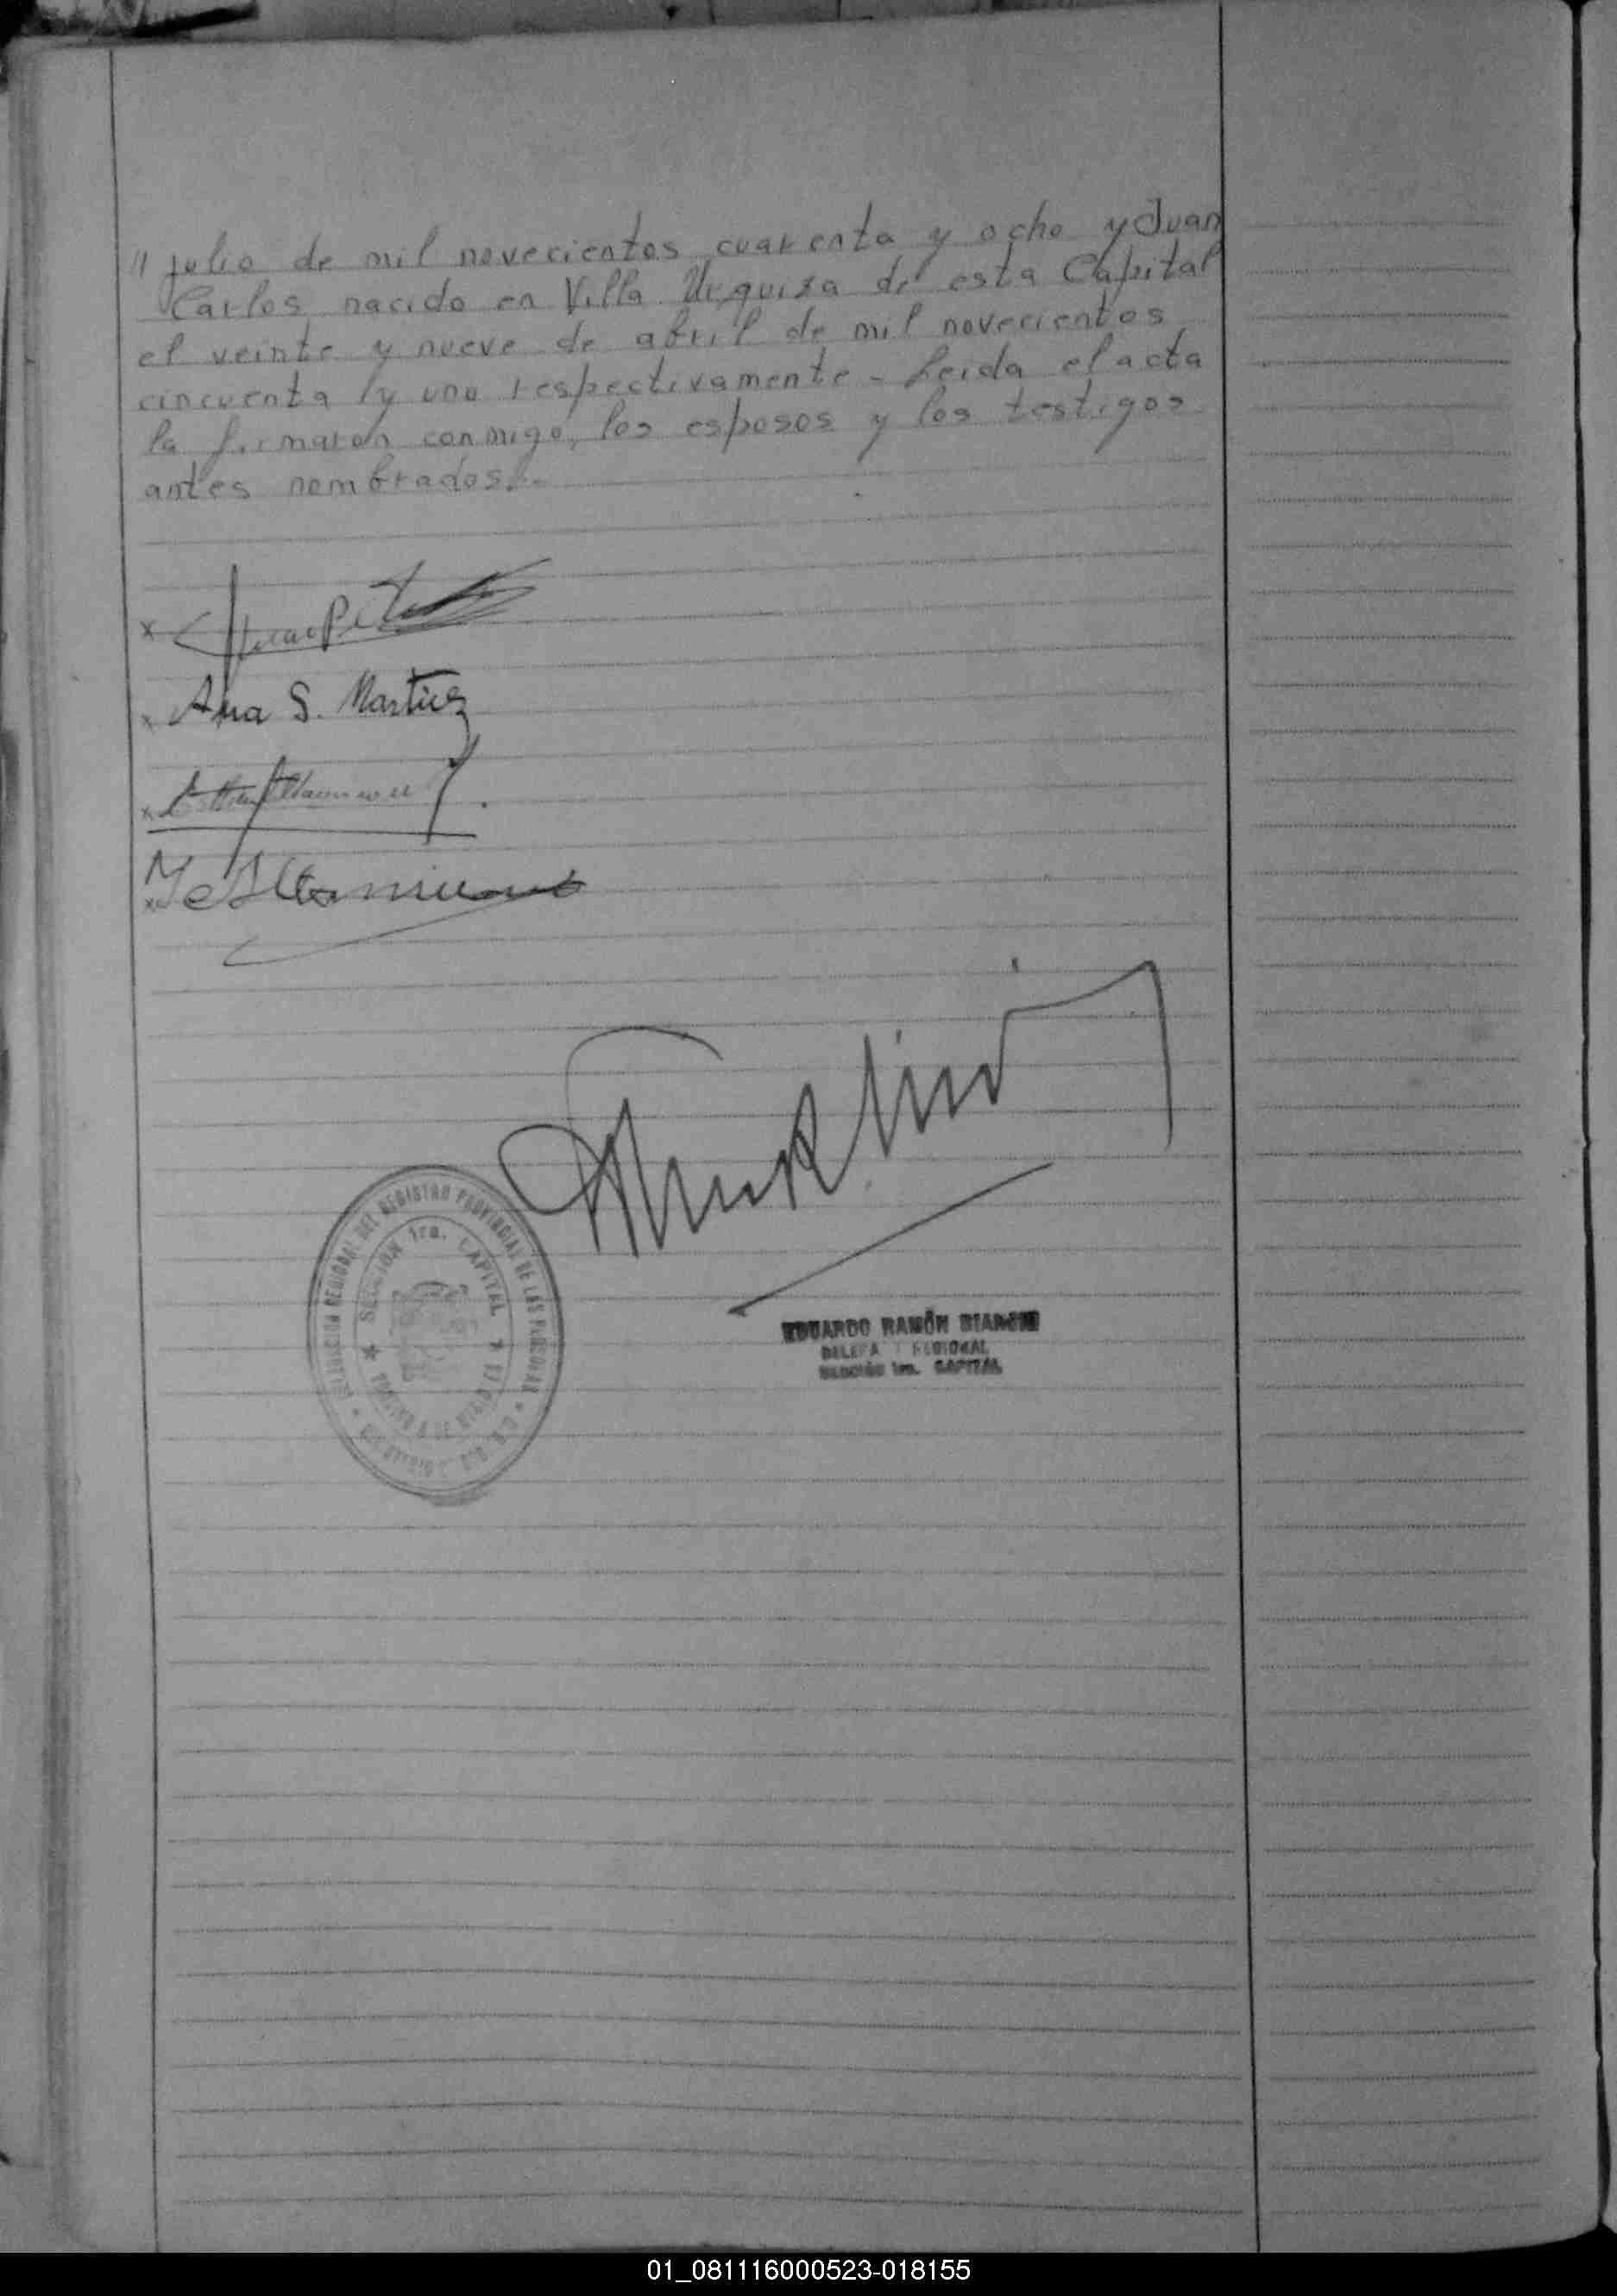 " julio de mil novecientos cuarenta y ocho y Juan
Carlos nacido en Villa Urquiza de esta Capital
el veinte y nueve de abril de mil novecientos
cincuenta y uno respectivamente - Leida el acta
la firmaron conmigo, los esposos y los testigos
antes nombrados.-
x
x Ana S. Martinez
x
x Altamirano
DEL REGISTRO PROVINCIAL DE LAS PERSONAS
SECCION 1ra. CAPITAL
EDUARDO RAMÓN BIANCHI
REGIONAL
SECCIÓN 1ra. CAPITAL
01_081116000523-018155